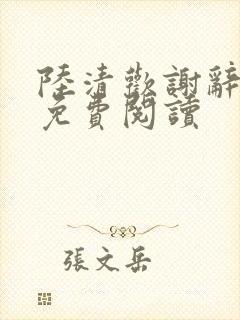 陸清歡謝辭
免費閱讀
張文岳